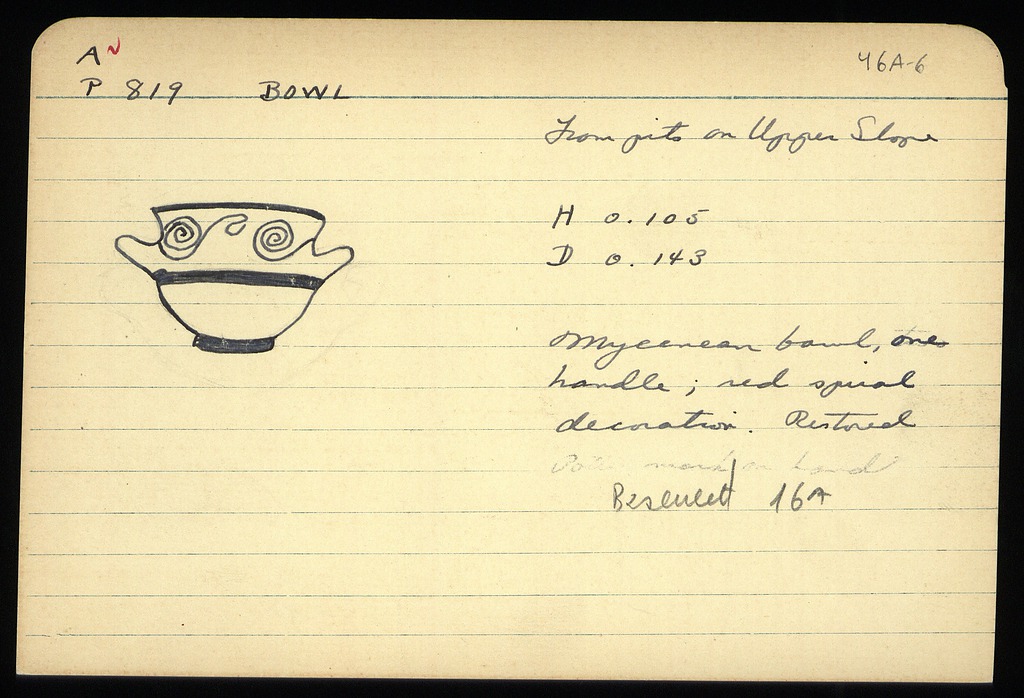 A
P 819 BOWL
46A-6
From pits on Upper Slope
H 0.105
D 0.143
Mycenean bowl, one
handle; red spiral
decoration. Restored
mark on
16A